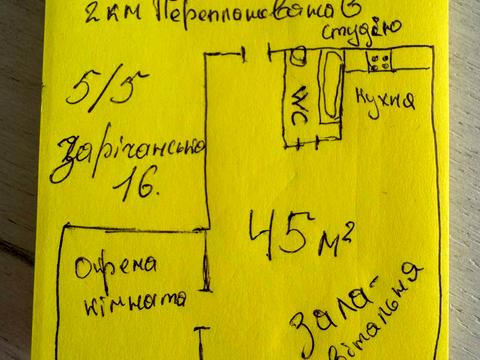 2 км Перепланована в
студію
5/5
WC
Кухня
Зарічанська
16.
45 м²
Окрема
кімната
Зала-
вітальня